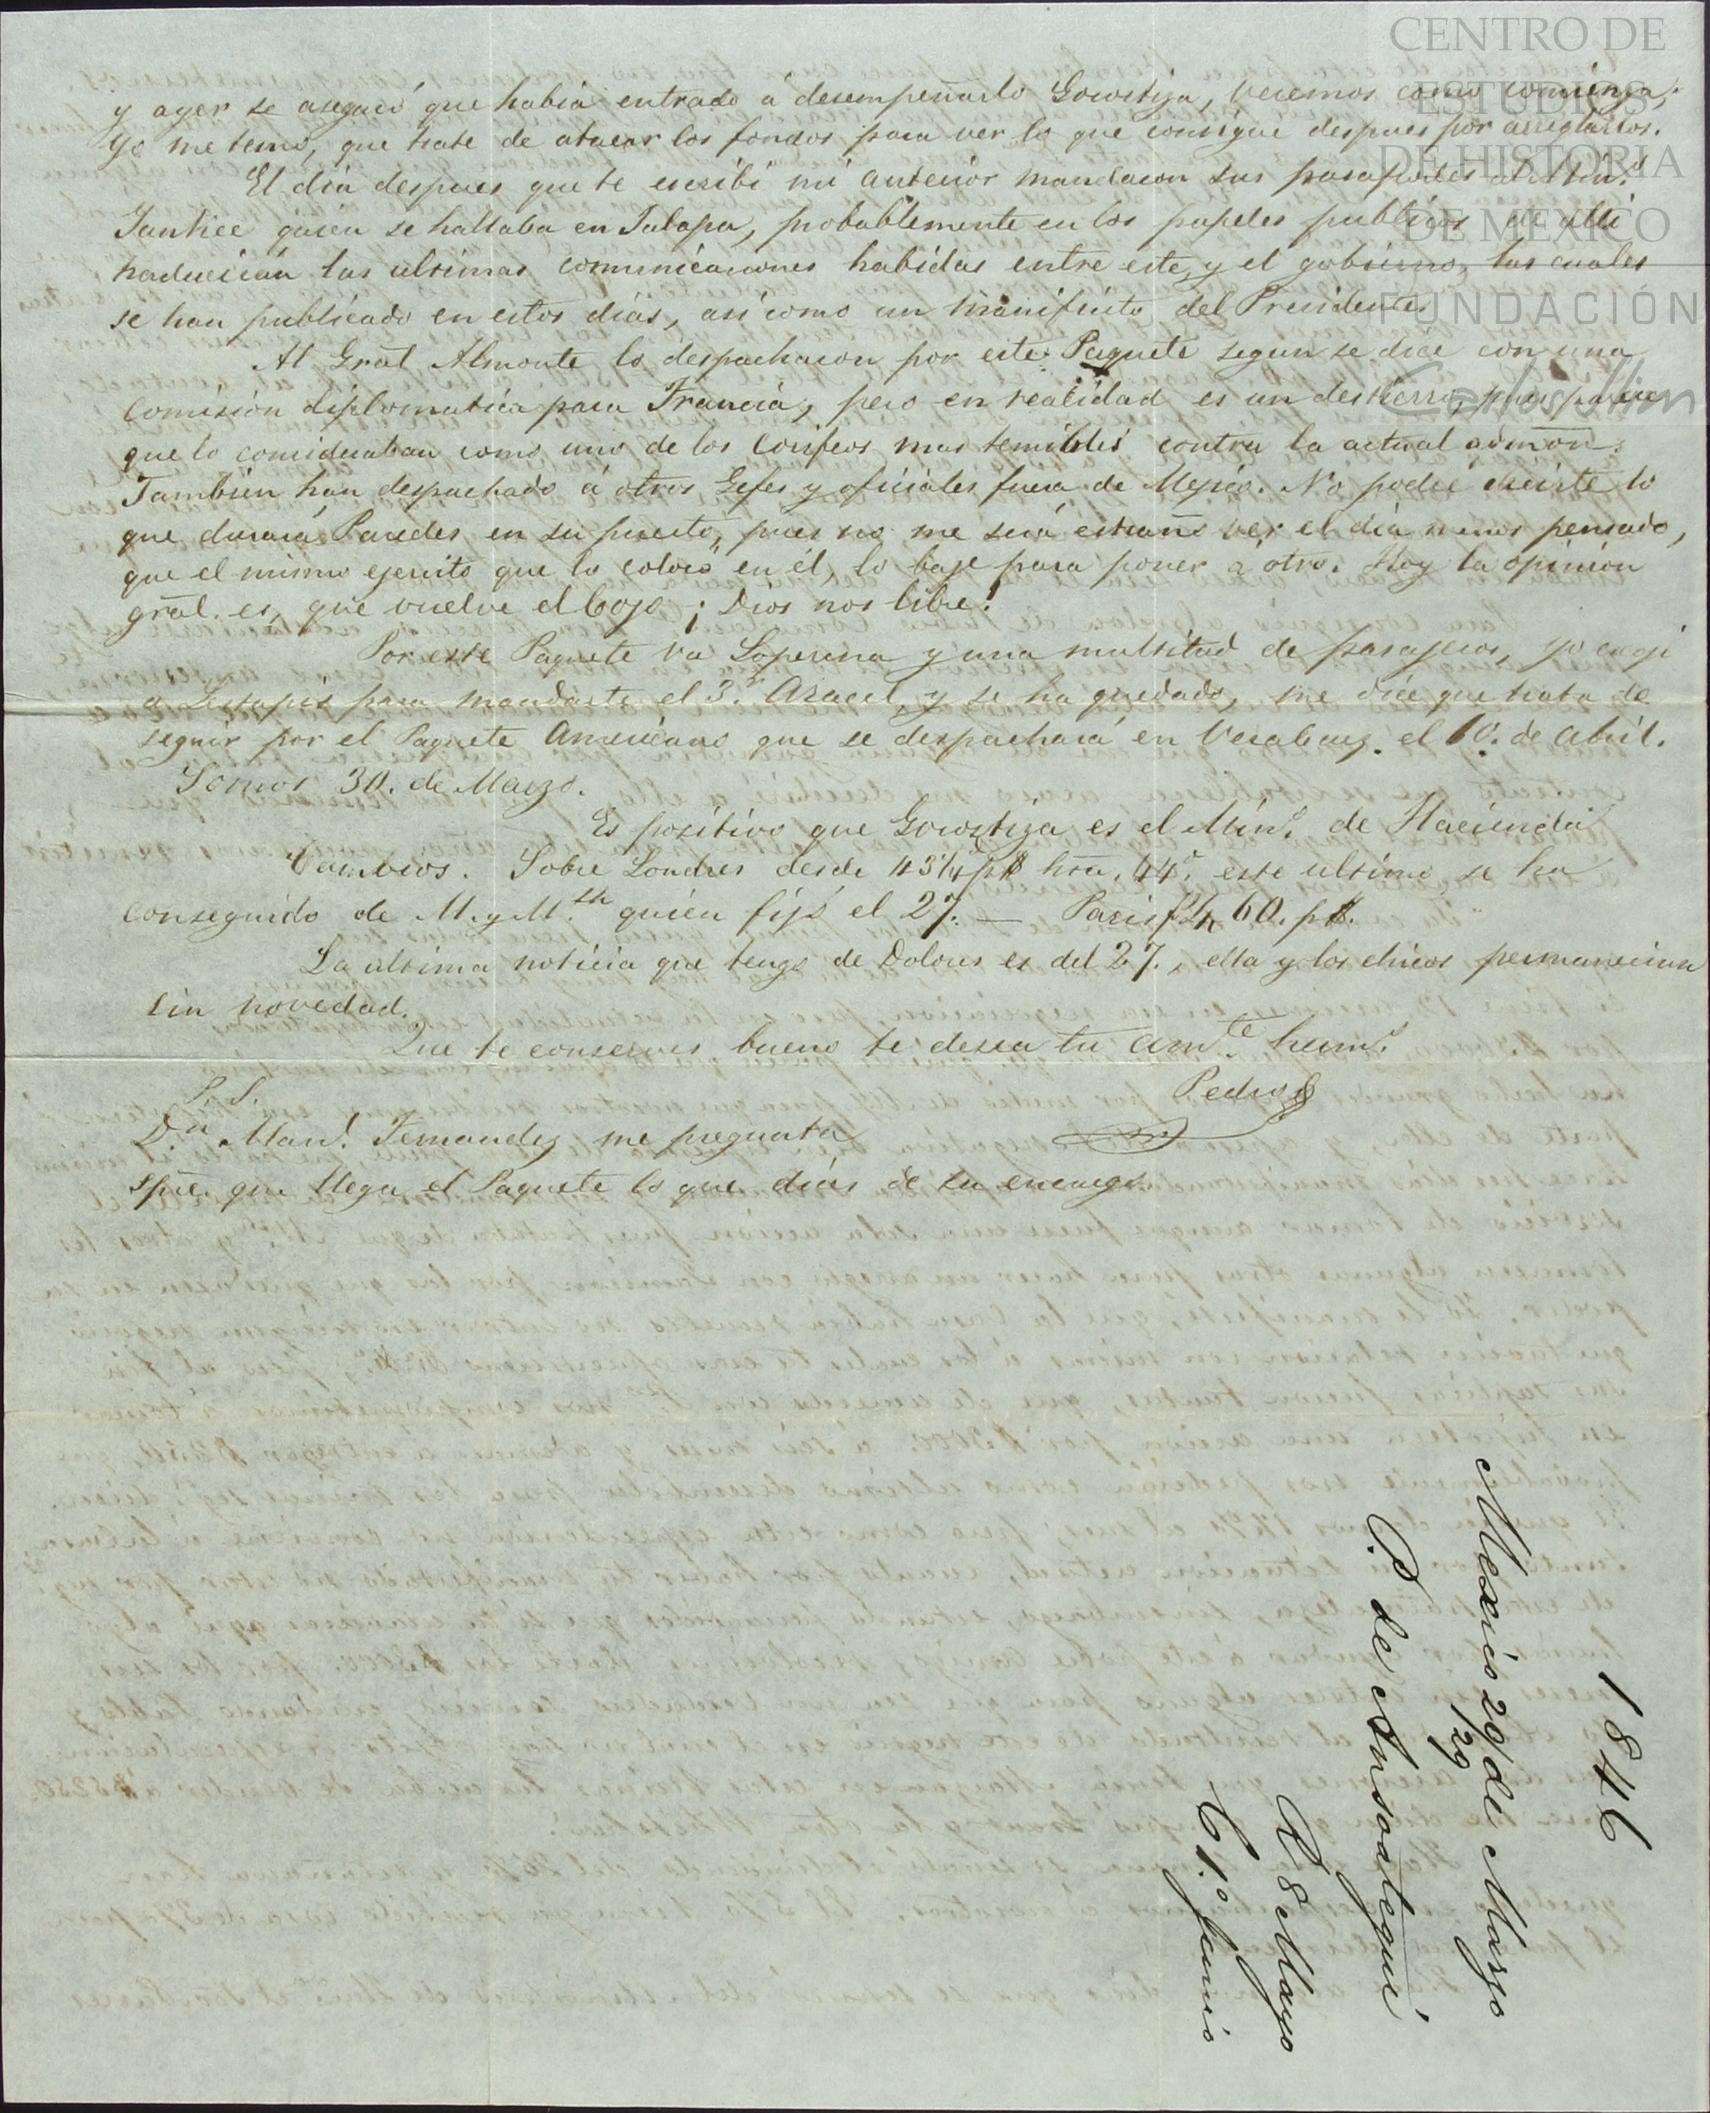 CENTRO DE
ESTUDIOS
DE HISTORIA
DE MÉXICO
FUNDACIÓN
Carlos Slim
y ayer se aseguró que habia entrado á desempeñarlo Gorostiza, veremos como comienza,
yo me temo, que trate de atacar los fondos para ver lo que consigue despues por arreglarlos.
El dia despues que te escribi mi anterior mandaron sus pasaportes al Min.º
Yankee quien se hallaba en Jalapa, probablemente en los papeles publicos de alli
traducirán las ultimas comunicaciones habidas entre este, y el gobierno, las cuales
se han publicado en estos dias, asi como un manifiesto del Presidente.
Al Gral Almonte lo despacharon por este Paquete segun se dice con una
comision diplomatica para Francia, pero en realidad es un destierro, pues parece
que lo consideraban como uno de los corifeos mas temibles contra la actual admon.
Tambien han despachado á otros Gefes y oficiales fuera de Mejico. No podré decirte lo
que durará Paredes en su puesto, pues no me será estraño ver el dia menos pensado,
que el mismo ejercito que lo colocó en él, lo baje para poner á otro. Hoy la opinion
gral. es, que vuelve el Cojo ¡Dios nos libre!
Por este Paquete va Loperena y una multitud de pasajeros, yo
a para mandarte el 3.r Aracel, y se ha quedado, me dice que trata de
seguir por el Paquete Americano que se despachará en Veracruz el 1º. de Abril.
Somos 30. de Marzo.
Es positivo que Gorostiza es el Min.º de Hacienda
Cambios. Sobre Londres desde 43¼ p$ hta. 44. este ultimo se ha
conseguido de M. y M. quien fijó el 27. — Paris f 4 60. p$.
La ultima noticia que tengo de Dolores es del 27., ella y los chicos permanecian
sin novedad.
Que te conserves bueno te desea tu am.te herm.º
Pedro
P. S.
D.n Man.l Fernandez me pregunta
spre. que llega el Paquete lo que dices de su encargo.
1846
Mexico 29/ de Marzo
/29
P. de Ansoategui
R 8 Mayo
C 1.º Junio